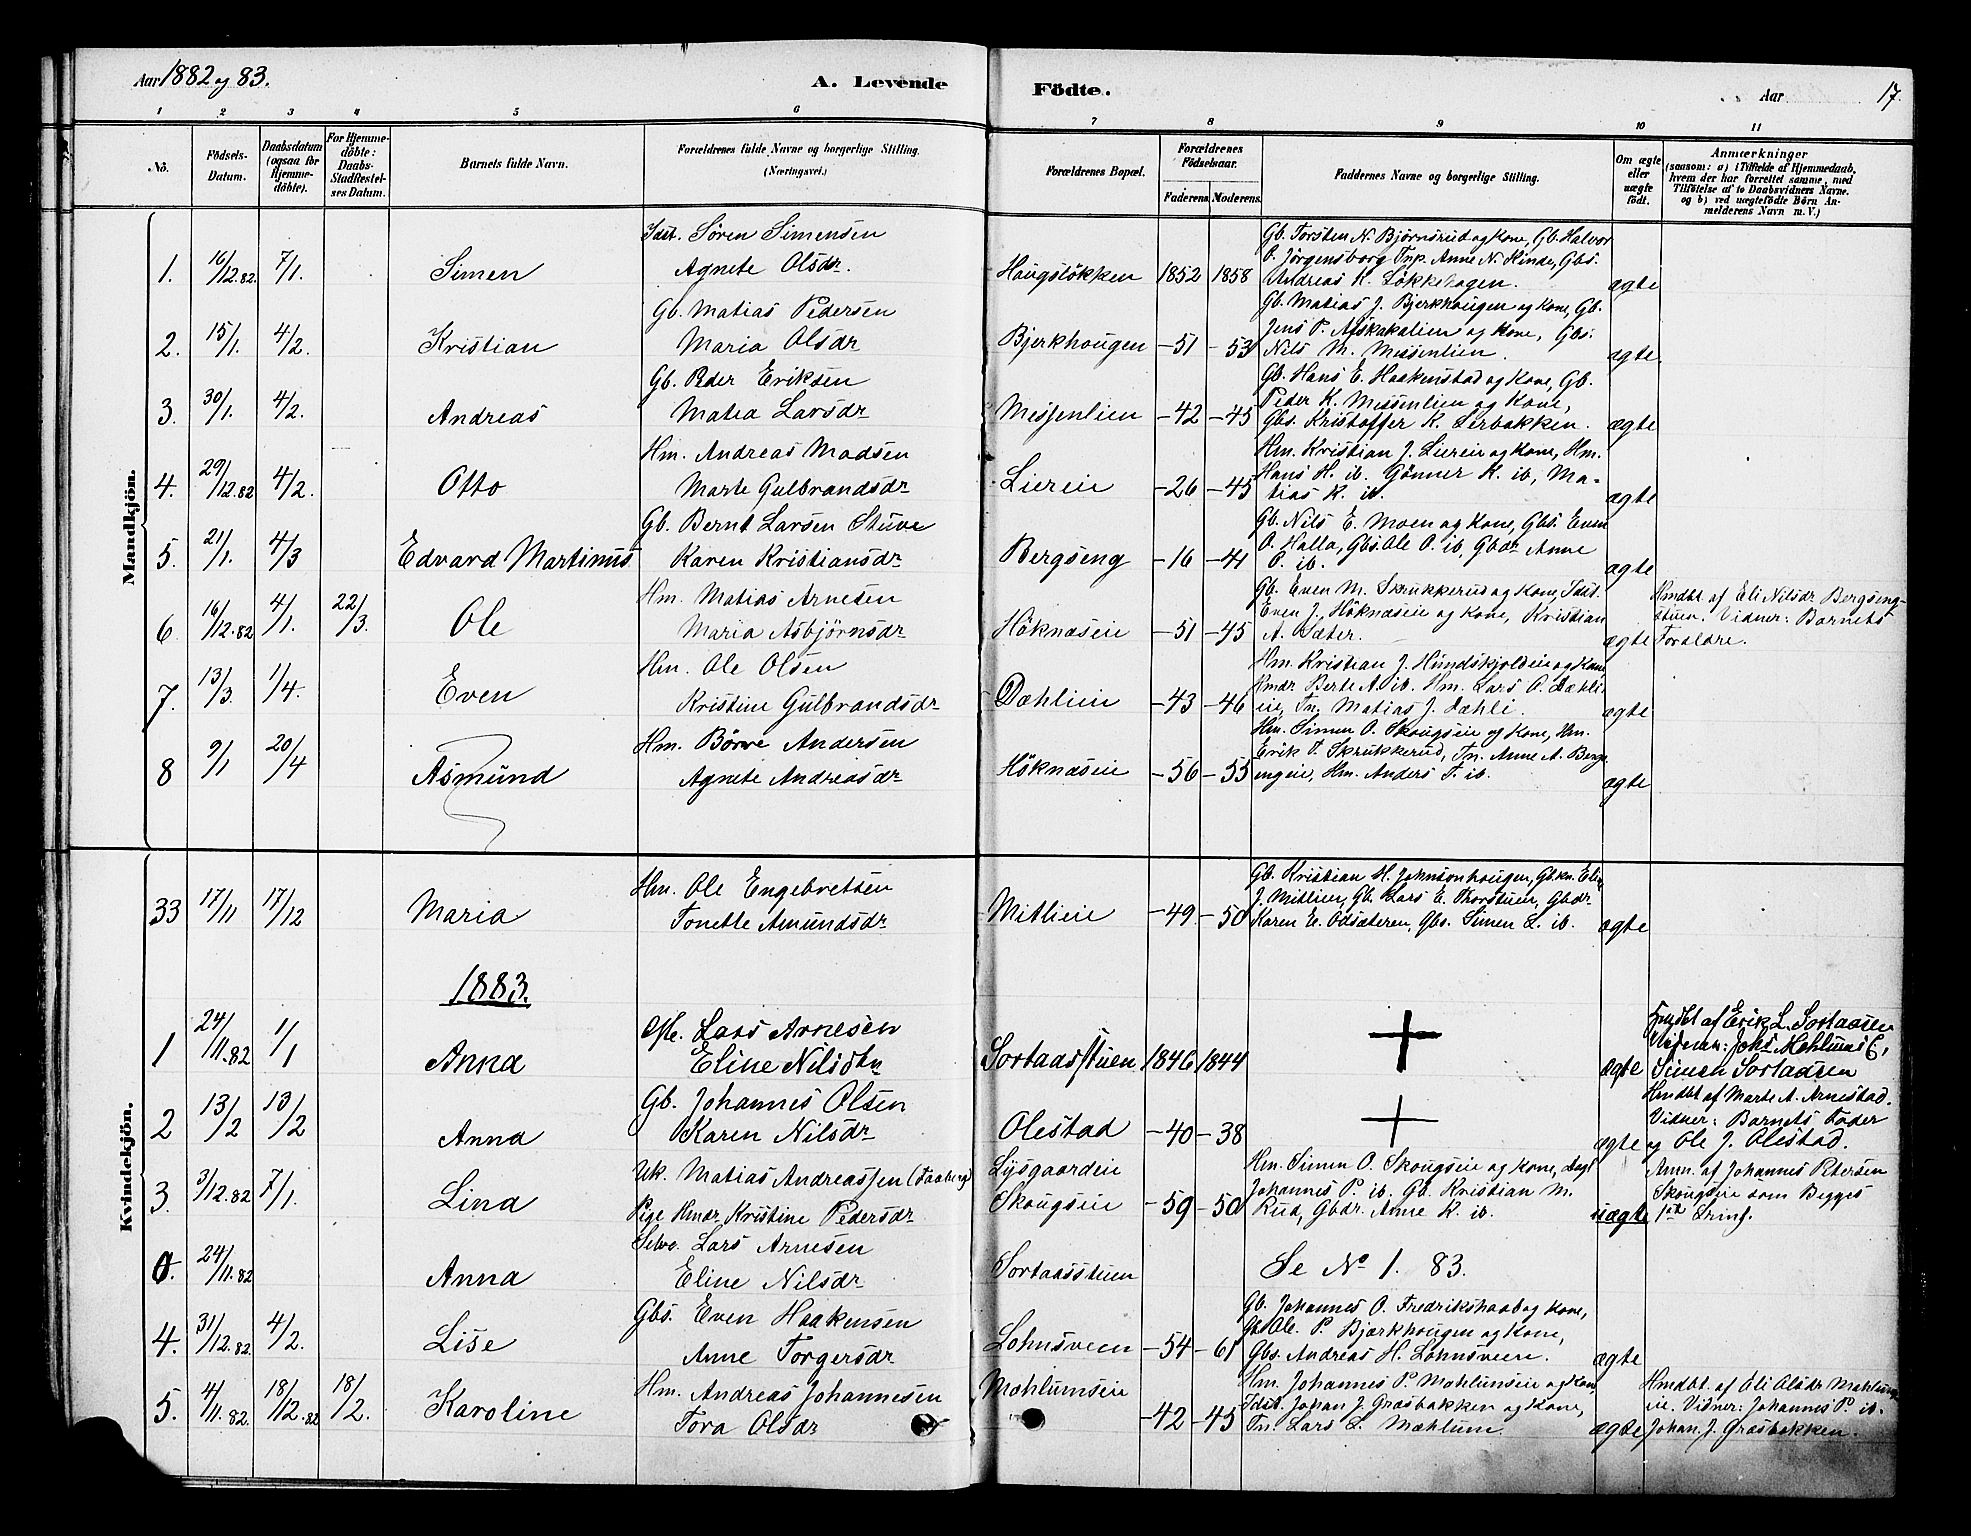 Aar 1882 og 83.
A. Levende
Födte.
Aar
17.
1 2 3 4 5 6 7 8 9 10 11
No.
Födsels-Datum.
Daabsdatum (ogsaa for Hjemme-döbte).
For Hjemme-döbte: Daabs-Stadfæstel-ses Datum.
Barnets fulde Navn.
Forældrenes fulde Navne og borgerlige Stilling. (Næringsvei.)
Forældrenes Bopæl.
Forældrenes Födselsaar.
Faderens. Moderens.
Faddernes Navne og borgerlige Stilling.
Om ægte eller uægte födt.
Anmærkninger
(saasom: a) i Tilfælde af Hjemmedaab,
hvem der har forrettet samme, med
Tilföielse af to Daabsvidners Navne,
og b) ved uægtefödte Börn An-
melderens Navn m. V.)
Mandkjön.
1. 16/12.82. 7/1. Simen
Idst. Sören Simensen
Agnete Olsdr.
Haugslökken 1852 1858
Gb. Torsten N. Björnsrud og Kone, Gb. Halvor
O. Jörgensborg Tnp. Anne N. Kinde, Gbs.
Andreas K. Lökkehagen.
ægte
2. 15/1. 4/2. Kristian
Gb. Matias Pedersen
Maria Olsdr
Bjerkhougen -51 -53
Gb. Matias J. Bjerkhougen og Kone, Gb.
Jens P. Afskakalien og Kone, Gbs.
Nils M. Messenlien.
ægte
3. 30/1. 4/2. Andreas
Gb. Peder Eriksen
Matea Larsdr
Messenlien -42 -45
Gb. Hans E. Haakenstad og Kone, Gb.
Peder K. Messenlien og Kone,
Gbs. Kristoffer K. Lerbakken.
ægte
4. 29/12.82 4/2. Otto
Hm. Andreas Madsen
Marte Gulbrandsdr
Liereie -26 -45
Hm. Kristian J. Liereie og Kone, Hm.
Hans H. ib. Gönner K. ib, Ma-
tias K. ib.
ægte
5. 21/1. 4/3 Edvard Martinus
Gb. Bernt Larsen Stuve
Karen Kristiansdr
Bergseng -16 -41
Gb. Nils E. Moen og Kone, Gbs. Even
O. Halla, Gbs. Ole O. ib, Gbdr Anne
O. ib.
ægte
6. 16/12.82 4/1. 22/3. Ole
Hm. Matias Arnesen
Maria Asbjörnsdr
Höknæseie -51 -45
Gb. Even M. Skrukkerud og Kone, Idst.
Even J. Höknæseie og Kone, Kristian
A. Sæter.
ægte
Hmdbt af Eli Nilsdr Bergseng-
stuen. Vidner: Barnets
Forældre.
7. 13/3. 1/4. Even
Hm. Ole Olsen
Kristine Gulbrandsdr
Dæhlieie -43 -46
Hm. Kristian J. Hundskjoldeie og Kone
Hmdr Berte A. ib. Hm. Lars O. Dæhli-
eie, Tn. Matias J. Dæhli.
ægte
8 9/1 20/4 Asmund
Hm. Börre Andersen
Agnete Andreasdr
Höknæseie -56 -55
Hm. Simen O. Skougseie og Kone, Hm.
Erik T. Skrukkerud, Tn. Anne A. Bergs
engeie, Hm. Anders T. ib.
ægte
Kvindekjön.
33 17/11 17/12 Maria
Hm. Ole Engebretsen
Tonette Amundsdr
Mitlieie -49. -50
Gb. Kristian H. Johnsonhougen, Gbkn. Eline
J. Mitlien, Gb. Lars E. Thorstuen, Gbdr
Karen E. Odsæteren, Gbs. Simen L. ib.
ægte
1883.
1 24/11.82 1/1 Anna
Lars Arnesen
Eline Nilsdtr
Sortaasstuen 1846 1844
ægte
Hmdbt af Erik L. Sortaasen
Vidner: Johs Mehlum &,
Simen Sortaasen
2 13/2 13/2 Anna
Gb. Johannes Olsen
Karen Nilsdr
Olestad -40 -38
ægte
Hmdbt af Marte A. Arnestad.
Vidner: Barnets Fader
og Ole J. Olestad.
3. 3/12.82 7/1. Lina
Uk. Matias Andreassen (Faaberg)
Pige Hmdr Kristine Pedersdr
Lysgaardeie
Skougseie -59 -50
Hm. Simen O. Skougseie og Kone, Dagl
Johannes P. ib. Gb. Kristian M.
Rud, Gbdr. Anne K. ib.
uægte
Anm. af Johannes Petersen
Skougseie som Begges
1ste
0. 24/11.82 Anna
Selve. Lars Arnesen
Eline Nilsdr
Sortaasstuen
Se No 1. 83.
4. 31/12.82. 4/2. Lise
Gbs. Even Haakensen
Anne Torgersdr
Lohnsveen -54 -61
Gb. Johannes O. Fredrikshaab og Kone,
Gb Ole. P. Bjærkhougen og Kone,
Gbs. Andreas H. Lohnsveen.
ægte
5. 4/11.82. 18/12.82 18/2. Karoline
Hm. Andreas Johannesen
Tora Olsdr
Mæhlumseie -42 -45
Hm. Johannes P. Mæhlumseie og Kone
Idst. Johan J. Græsbakken og Kone,
Tn. Lars L. Mæhlum
ægte
Hmdbt. af Oli Olsdr Mæhlums-
eie. Vidner: Johannes P. ib.
Johan. J. Græsbakken.